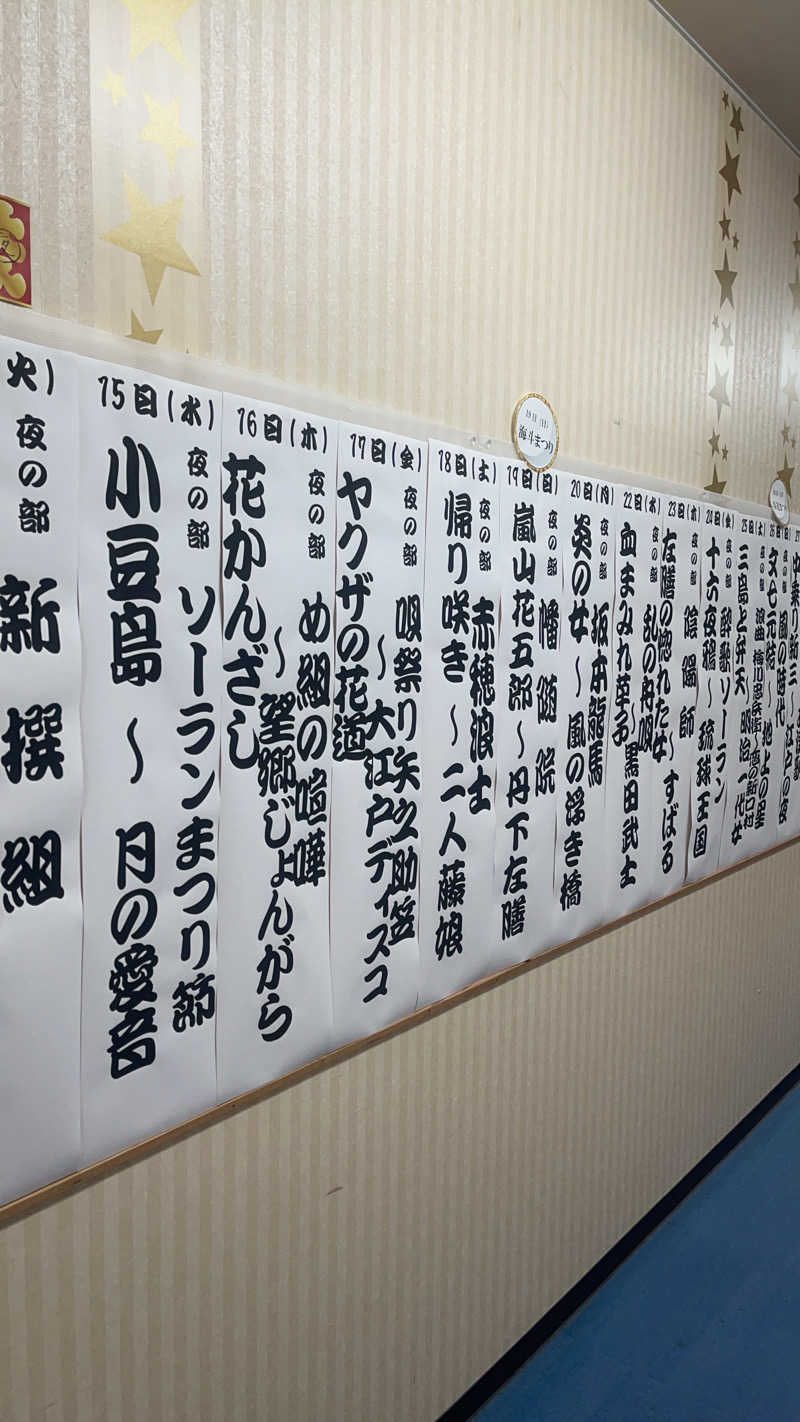 火)
夜の部
新撰組
15日(水)
夜の部
ソーランまつり節
小豆島 ~ 月の愛音
16日(木)
夜の部
め組の喧嘩
~望郷じょんがら
花かんざし
17日(金)
夜の部
唄祭り矢之助笠
~大江戸ディスコ
ヤクザの花道
18日(土)
夜の部
赤穂浪士
帰り咲き~二人藤娘
19日(日)
海斗まつり
19日(日)
夜の部
幡随院
嵐山花五郎~丹下左膳
20日(月)
夜の部
坂本龍馬
炎の女~風の浮き橋
22日(水)
夜の部
乱の舟唄
血まみれ草子
~黒田武士
23日(木)
夜の部
陰陽師
左膳の惚れた女~すばる
24日(金)
夜の部
酔歌ソーラン
十六夜鴉~琉球王国
25日(土)
夜の部
三島と弁天
明治一代女
26日(日)
夜の部
文七元結~地上の星
27